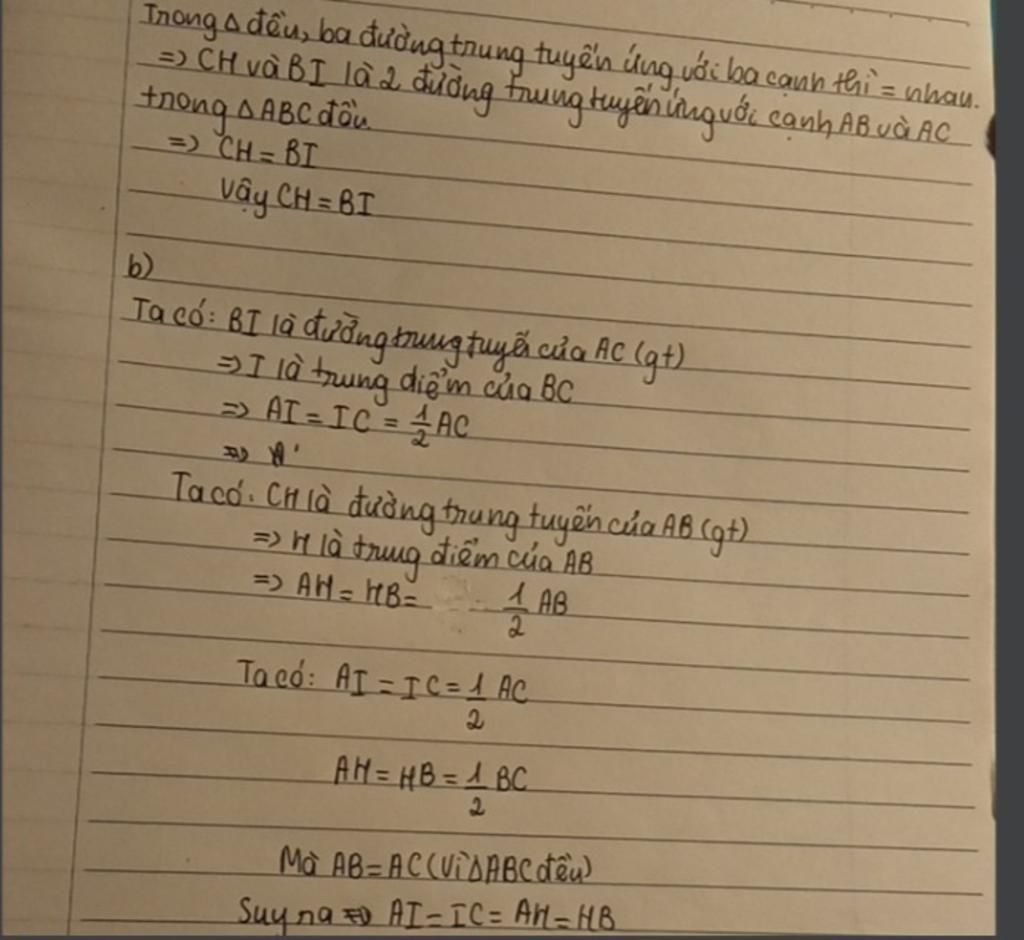 Trong Δ đều, ba đường trung tuyến ứng với ba cạnh thì = nhau.
=> CH và BI là 2 đường trung tuyến ứng với cạnh AB và AC
trong Δ ABC đều
=> CH = BI
Vậy CH = BI
b)
Ta có: BI là đường trung tuyến của AC (gt)
=> I là trung điểm của BC
=> AI = IC = 1/2 AC
=> A
Ta có: CH là đường trung tuyến của AB (gt)
=> H là trung điểm của AB
=> AH = HB = 1/2 AB
Ta có: AI = IC = 1/2 AC
AH = HB = 1/2 BC
Mà AB = AC (Vì Δ ABC đều)
Suy ra => AI = IC = AH = HB